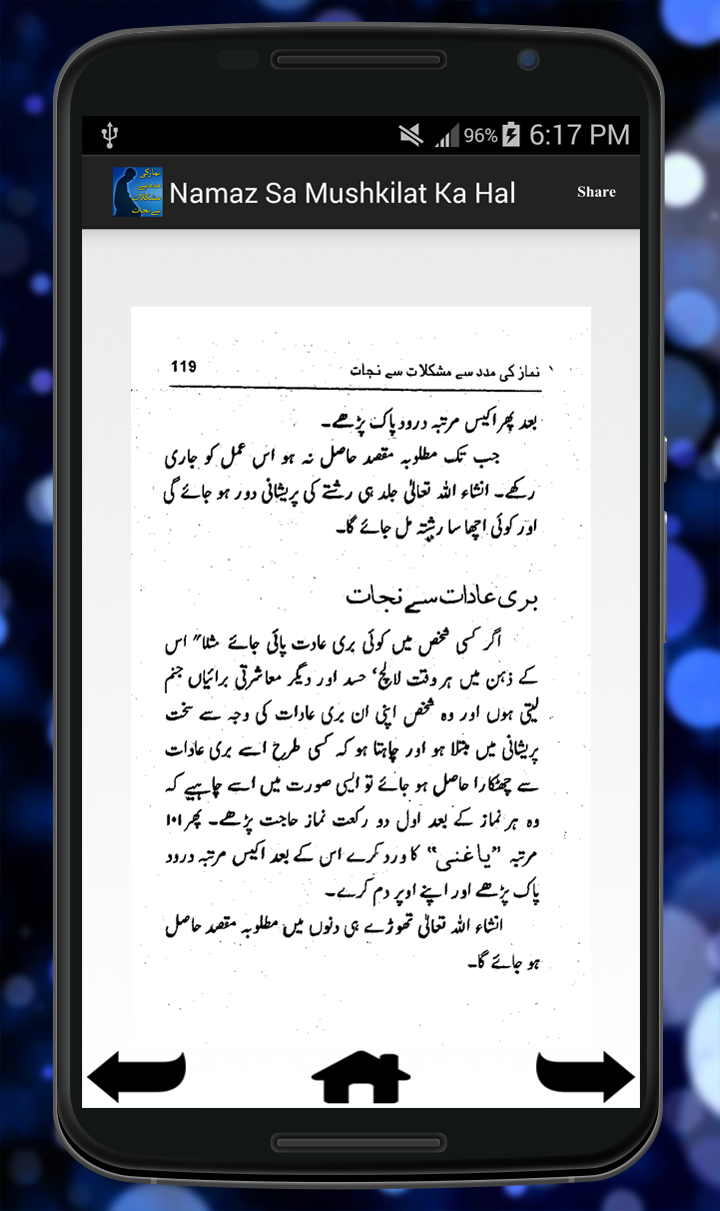 96% 6:17 PM
نماز کی
مدد سے
مشکلات
سے نجات
Namaz Sa Mushkilat Ka Hal
Share
نماز کی مدد سے مشکلات سے نجات 119
بعد پھر اکیس مرتبہ درود پاک پڑھے۔
جب تک مطلوبہ مقصد حاصل نہ ہو اس عمل کو جاری
رکھے۔ انشاء اللہ تعالیٰ جلد ہی رشتے کی پریشانی دور ہو جائے گی
اور کوئی اچھا سا رشتہ مل جائے گا۔
بری عادات سے نجات
اگر کسی شخص میں کوئی بری عادت پائی جائے مثلا" اس
کے ذہن میں ہر وقت لالچ' حسد اور دیگر معاشرتی برائیاں جنم
لیتی ہوں اور وہ شخص اپنی ان بری عادات کی وجہ سے سخت
پریشانی میں مبتلا ہو اور چاہتا ہو کہ کسی طرح اسے بری عادات
سے چھٹکارا حاصل ہو جائے تو ایسی صورت میں اسے چاہیے کہ
وہ ہر نماز کے بعد اول دو رکعت نماز حاجت پڑھے۔ پھر ۱۰۱
مرتبہ "یاغنی" کا ورد کرے اس کے بعد اکیس مرتبہ درود
پاک پڑھے اور اپنے اوپر دم کرے۔
انشاء اللہ تعالیٰ تھوڑے ہی دنوں میں مطلوبہ مقصد حاصل
ہو جائے گا۔